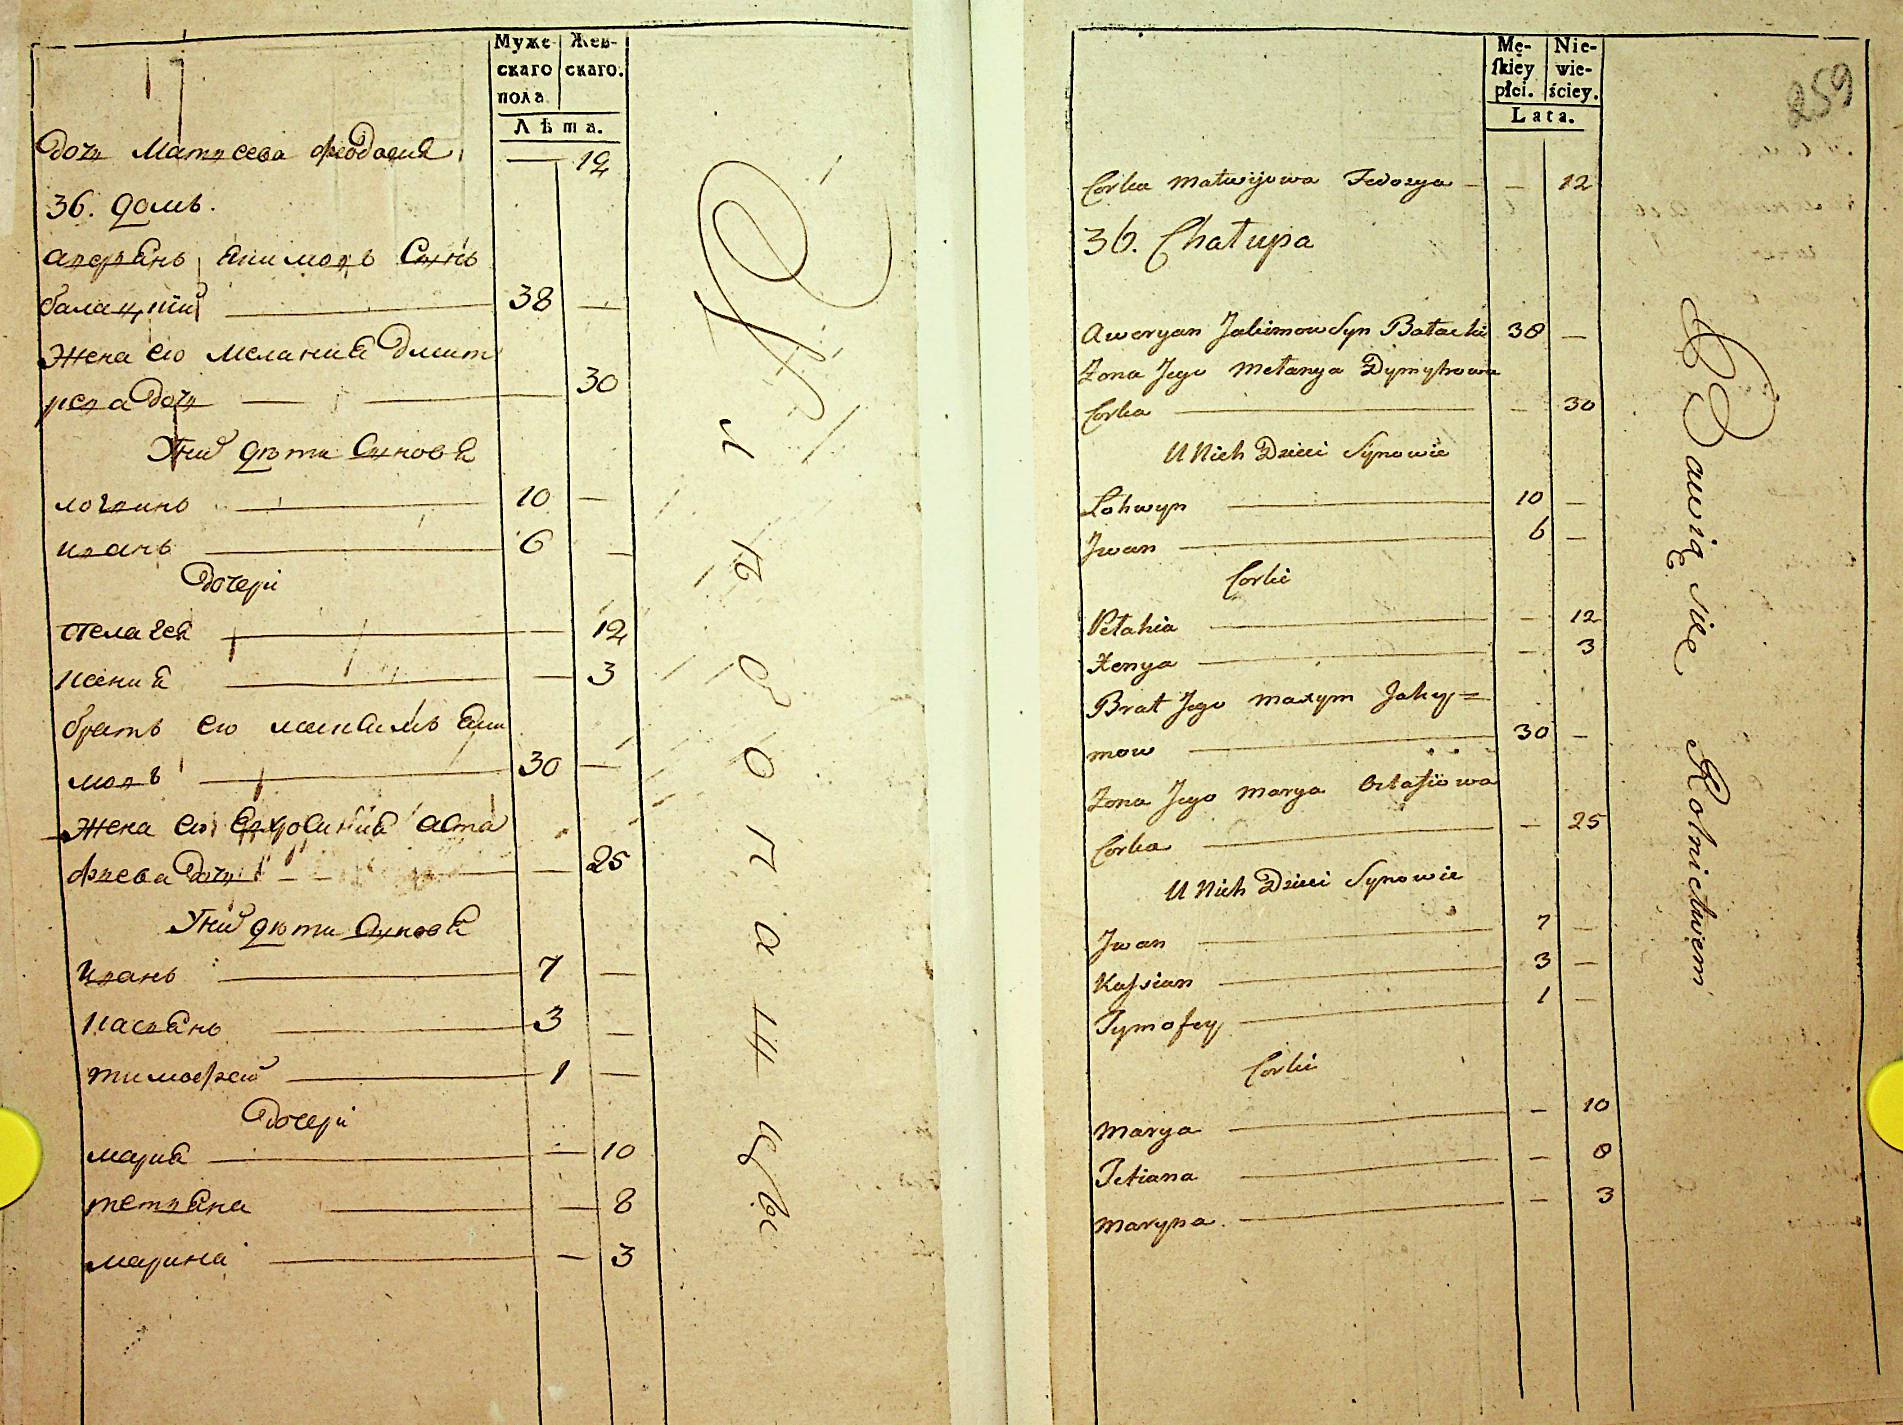 Муже-
скаго
пола.
Жен-
скаго.
Лѣта.
дочь Матвеева Феодосия — 12
36. домъ.
аверіянъ екимовъ Синъ
балацкій 38 —
Жена его меланія Дмит
рева дочь — 30
У них дѣти Синовя
логвинъ 10 —
иванъ 6 —
Дочери
пелагея — 12
ксения — 3
братъ его максимъ еки
мовъ 30 —
Жена его аста
фиева дочь — 25
У них дѣти Синовя
Иванъ 7 —
Касиянъ 3 —
тимофей 1 —
Дочери
мария — 10
тетияна — 8
марина — 3
Хлѣбопашцы
Mę-
skiey
płci.
Nie-
wie-
ściey.
Lata.
259
Corka Matwijowa Fedosya — 12
36. Chałupa
Aweryan Jakimow Syn Bałacki 38 —
Zona Jego Mełanya Dymytrowa
Corka — 30
U Nich Dzieci Synowie
Lohwyn 10 —
Jwan 6 —
Corki
Pełahia — 12
Xenya — 3
Brat Jego Maxym Jaky=
mow 30 —
Zona Jego Marya Ostafiowa
Corka — 25
U Nich Dzieci Synowie
Jwan 7 —
Kassian 3 —
Tymofey 1 —
Corki
Marya — 10
Tetiana — 8
Maryna — 3
Bawią się Rolnictwem